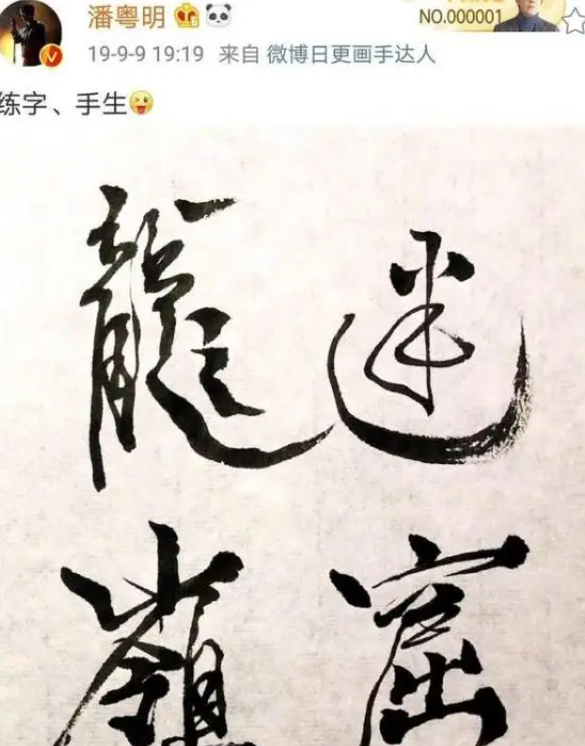 潘粤明
NO.000001
19-9-9 19:19 来自 微博日更画手达人
练字、手生
龍 迷
嶺 窟